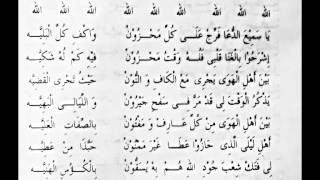 الله الله الله الله الله الله الله
يَا سَمِيْعَ الدُّعَا فَرِّجْ عَلَى كُلِّ مَحْزُوْنْ وَاكْفِ كُلَّ الْبَلِيَّهْ
اِشْرَحُوا بِالْغِنَا قَلْبِيْ فَلِهْ وَقْتْ مَحْزُوْنْ فِيْهِ كَمْ لُهْ شَكِيَّهْ
بَيْنَ أَهْلِ الْهَوَى يَجْرِى مَعَ الْكَافِ وَالنُّوْنْ حَيْثُ تَجْرِى الْقَضِيَّهْ
يَذْكُرُ الْوَقْتَ لِى قَدْ مَرَّ فِى سَفْحِ جَيْرُوْنْ وَاللَّيَالِى الْبَهِيَّهْ
بَيْنَ أَهْلِ الْهَوَى مِنْ كُلِّ عَارِفْ وَمَفْتُوْنْ بِالصِّفَاتِ الْعَلِيَّهْ
أَهْلِ لَيْلَى الَّذِى حَازُوْا عَطَا غَيْرَ مَمْنُوْنْ حَبَّذَا مِنْ عَطِيَّهْ
فِى شِعْبِ جُوْدِ اللهْ هُمْ بِهْ يُسْقَوْنْ بِالْكُؤُسِ الْهَنِيَّهْ